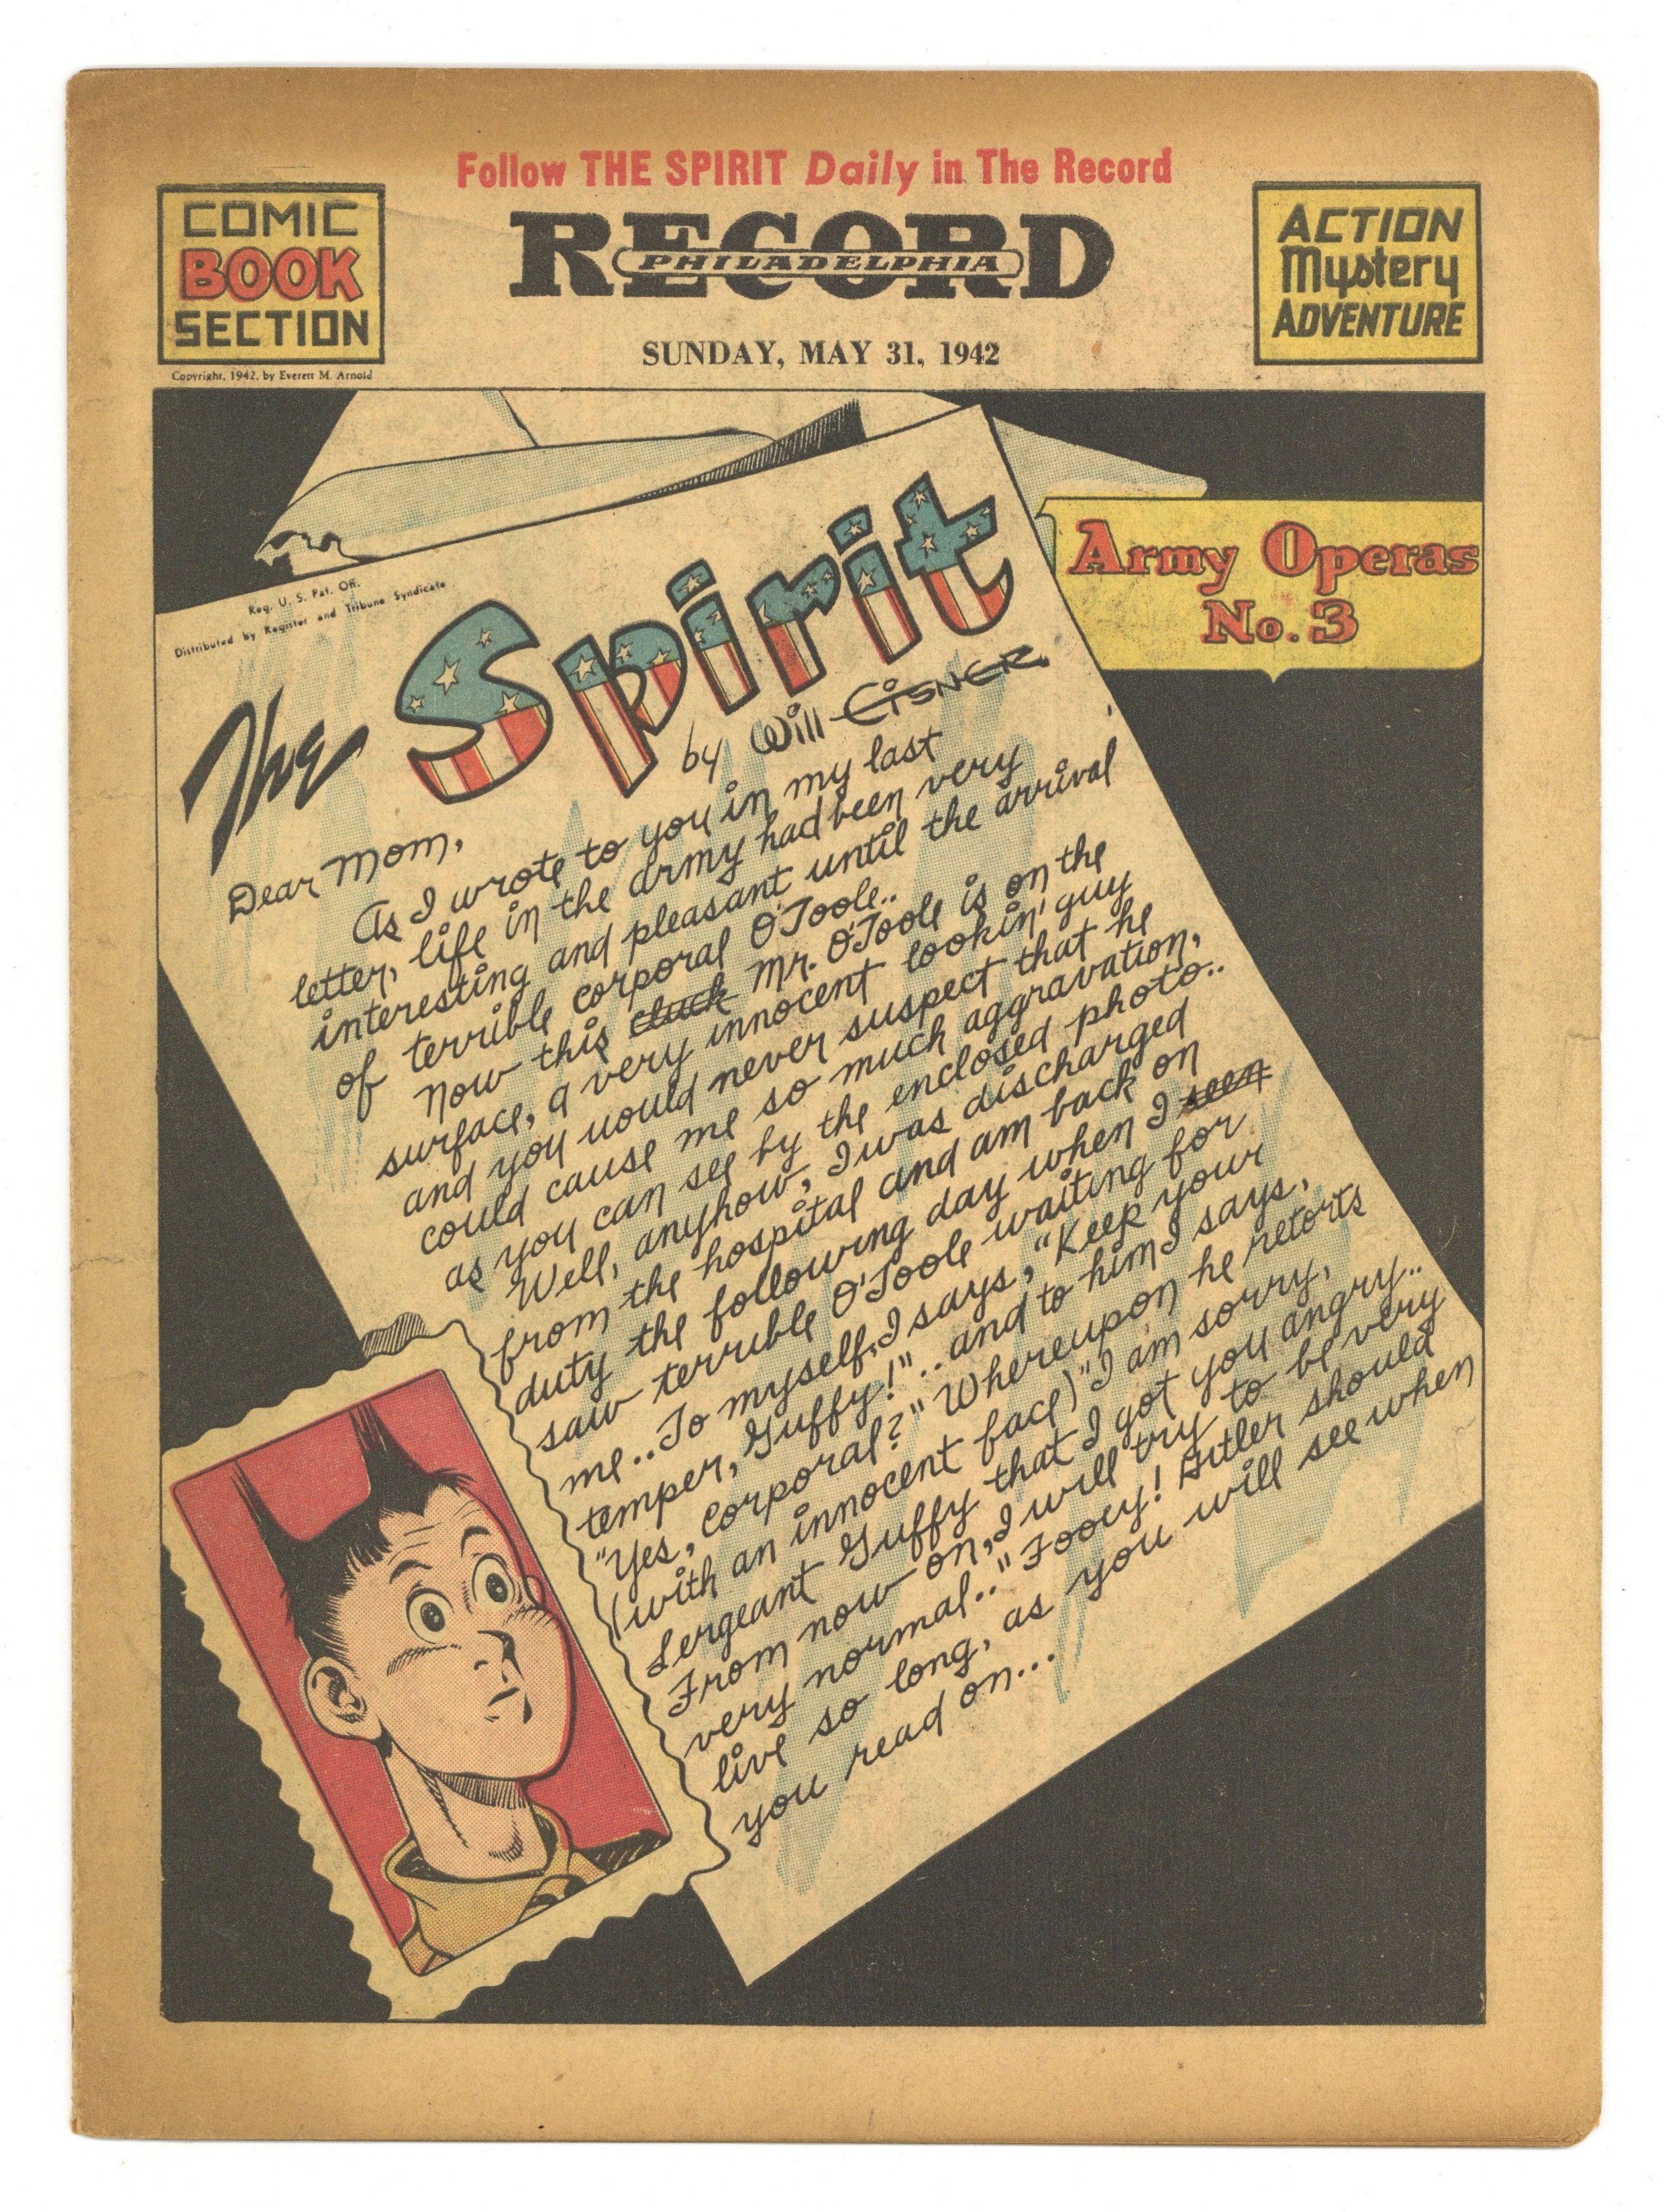 Follow THE SPIRIT Daily in The Record
COMIC
BOOK
SECTION
Copyright, 1942, by Everett M. Arnold
RECORD
PHILADELPHIA
SUNDAY, MAY 31, 1942
ACTION
Mystery
ADVENTURE
Reg. U. S. Pat. Off.
Distributed by Register and Tribune Syndicate
The Spirit
by Will EISNER
Army Operas
No. 3
Dear Mom,
As I wrote to you in my last
letter, life in the army had been very
interesting and pleasant until the arrival
of terrible corporal O'Toole..
Now this cluck Mr. O'Toole is on the
surface, a very innocent lookin' guy
and you would never suspect that he
could cause me so much aggravation,
as you can see by the enclosed photo..
Well, anyhow, I was discharged
from the hospital and am back on
duty the following day when I seen
saw terrible O'Toole waiting for
me.. To myself, I says, "Keep your
temper, Guffy!".. and to him I says,
"Yes, corporal?" Whereupon he retorts
(with an innocent face) "I am sorry,
Sergeant Guffy that I got you angry..
From now on, I will try to be very
very normal.." Fooey! Hitler should
live so long, as you will see when
you read on...